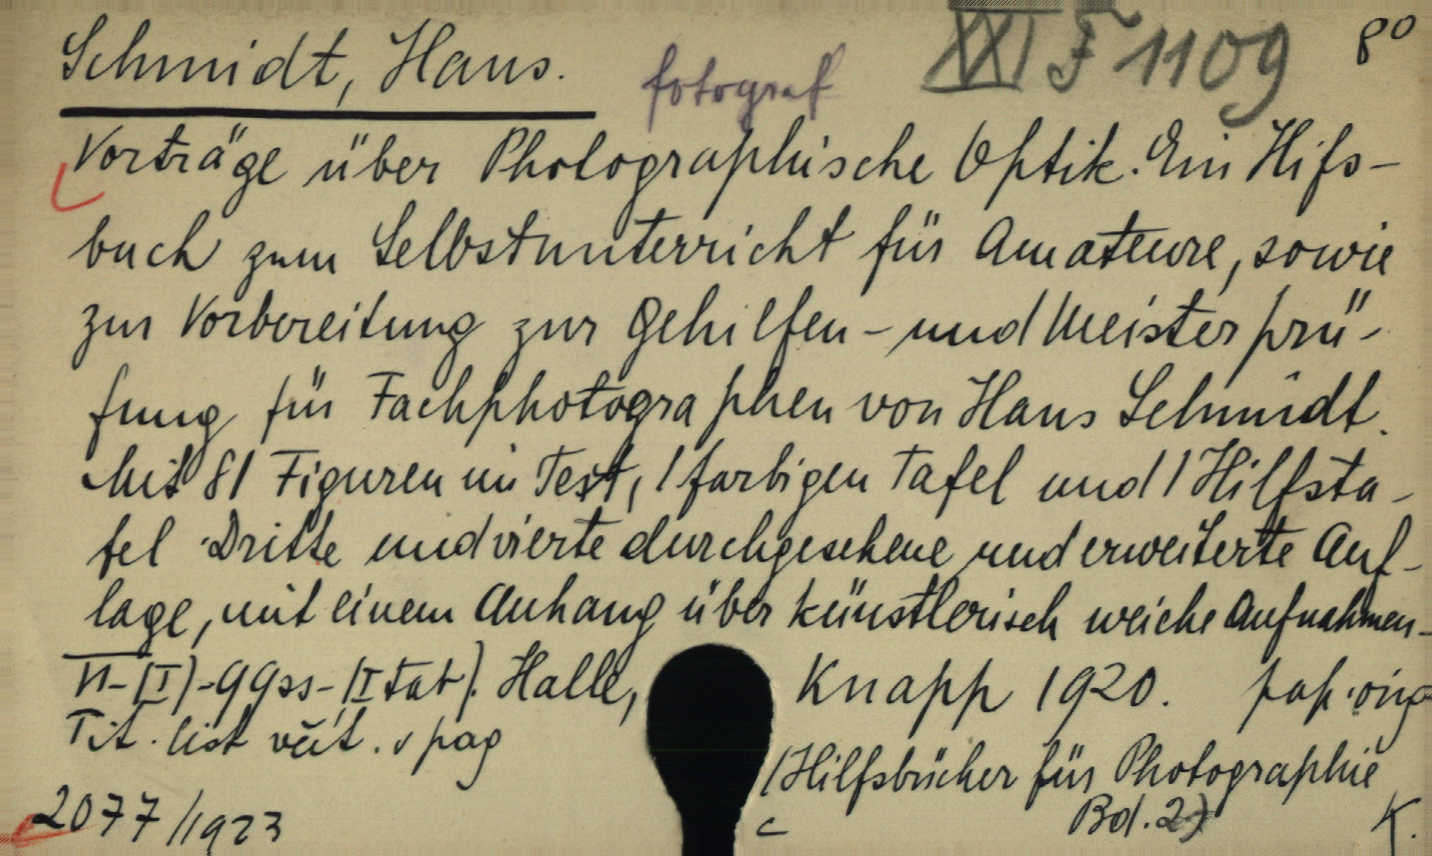 Schmidt, Hans. fotograf XXI F 1109 8°
Vorträge über Photographische Optik. Ein Hifs-
buch zum Selbstunterricht für Amateure, sowie
zur Vorbereitung zur Gehilfen- und Meisterprü-
fung für Fachphotographen von Hans Schmidt.
Mit 81 Figuren im Text, 1 farbigen Tafel und 1 Hilfsta-
fel Dritte und vierte durchgesehene und erweiterte Auf-
lage, mit einem Anhang über künstlerisch weiche Aufnahmen-
VI-(I)-99ss-(I tab). Halle, Knapp 1920. pap. orig
Tit. list věit. v pag
(Hilfsbücher für Photographie
Bd. 2)
2077/1923 c K.